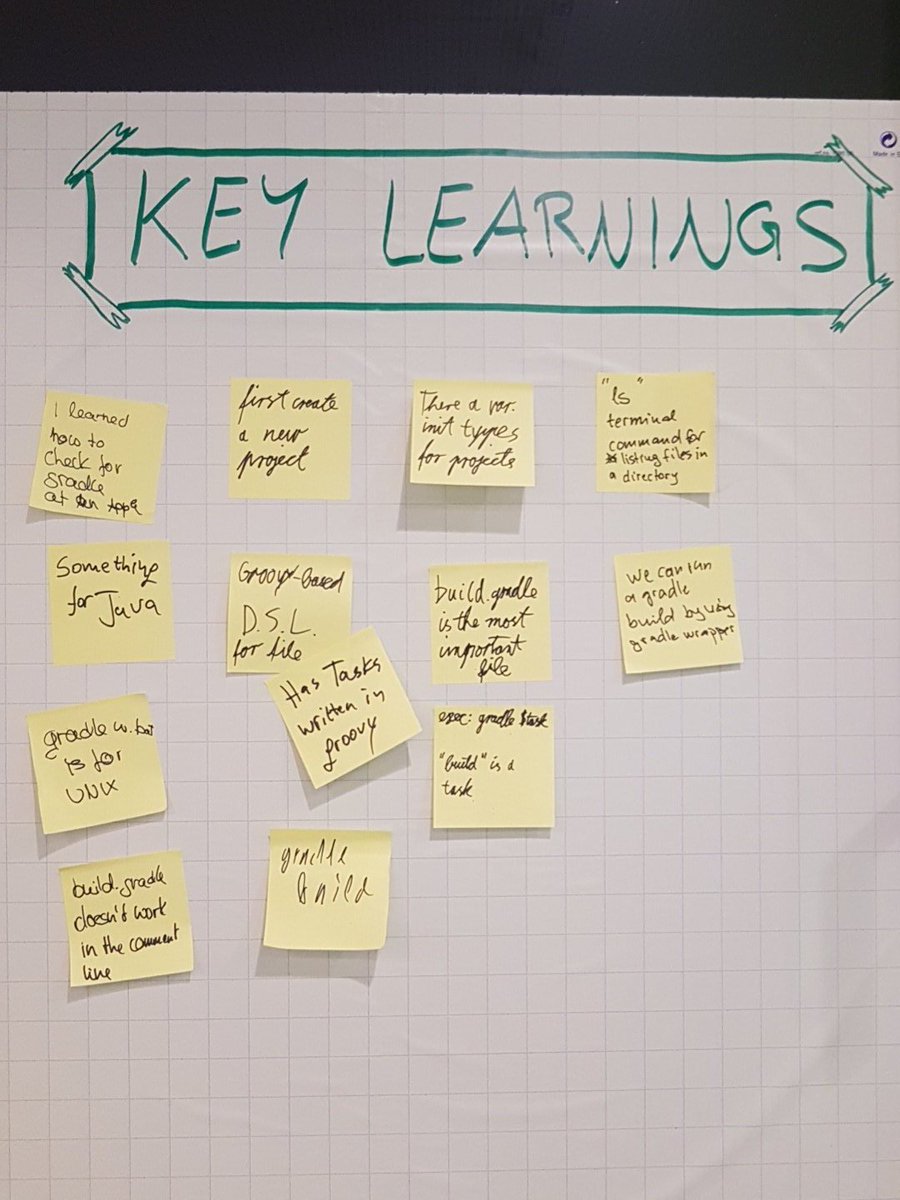 KEY LEARNINGS
Made in
I learned
how to
check for
gradle
at an App
first create
a new
project
There a var.
init types
for projects
"ls"
terminal
command for
listing files in
a directory
Something
for Java
Groovy-based
D.S.L.
for file
build.gradle
is the most
important
file
we can run
a gradle
build by using
gradle wrapper
Has Tasks
written in
groovy
gradle w.bat
is for
UNIX
exec: gradle $task
"build" is a
task
build.gradle
doesn't work
in the comment
line
gradle
build